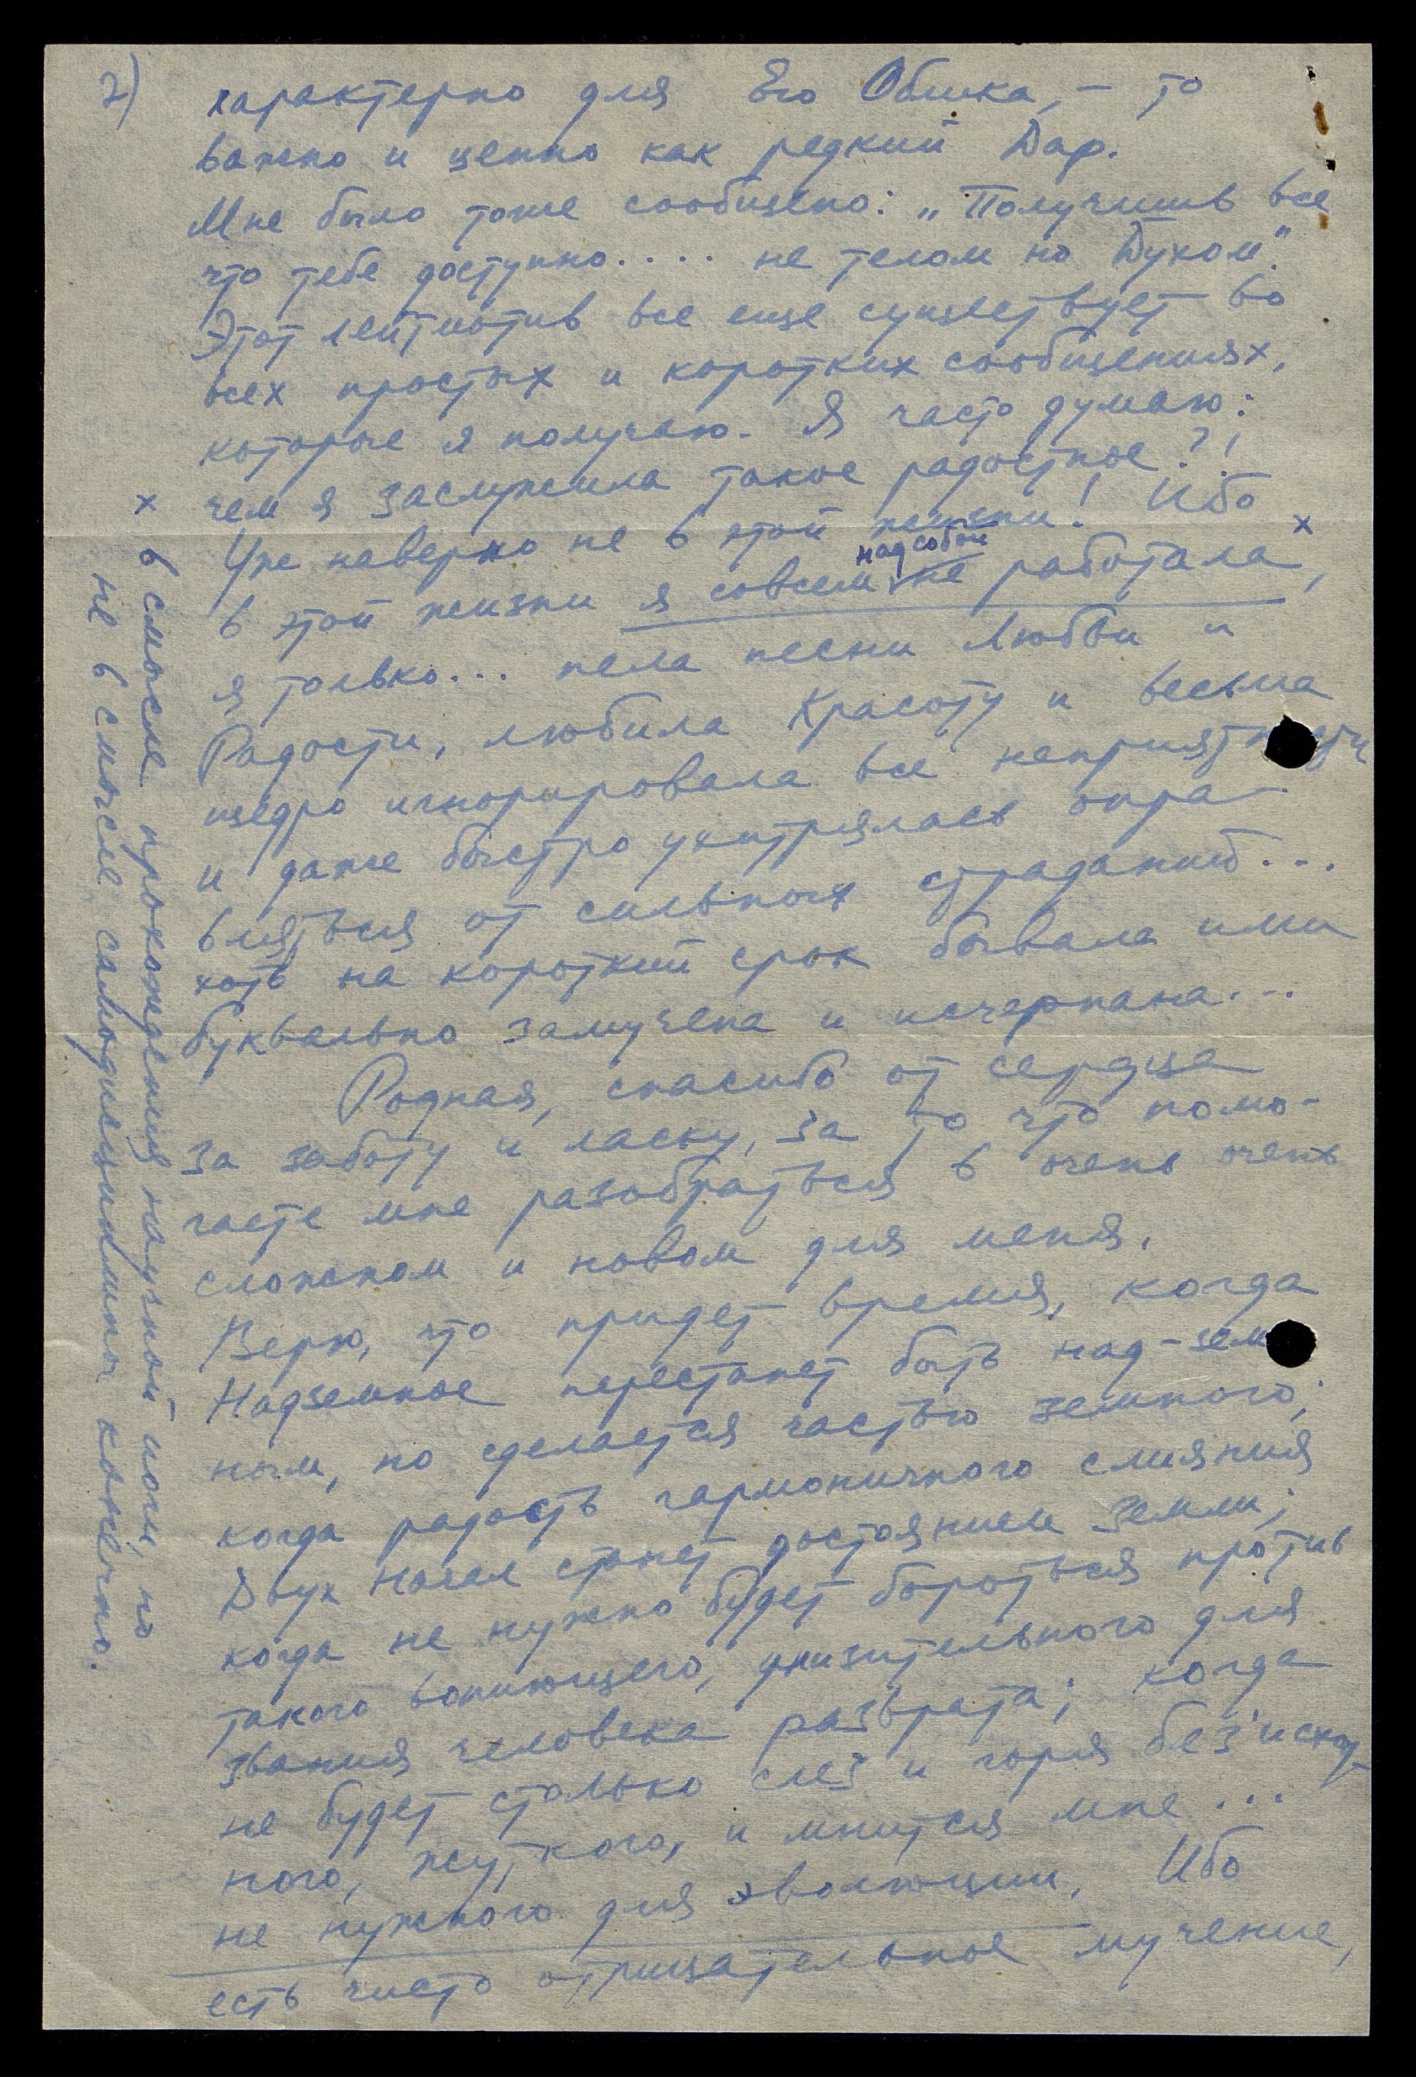 2)
характерно для Его Облика, – то
важно и ценно как редкий Дар.
Мне было тоже сообщено: „Получишь все
что тебе доступно.... не телом но Духом".
Этот лейтмотив все еще существует во
всех простых и коротких сообщениях,
которые я получаю. Я часто думаю:
чем я заслужила такое радостное?!
Уже наверно не в этой жизни! Ибо
над собой
в этой жизни я совсем не работала x,
я только... пела песни Любви и
Радости, любила Красоту и весьма
щедро игнорировала все неприятности
и даже быстро ухитрялась опра-
вляться от сильных страданий...
хоть на короткий срок бывала ими
буквально замучена и исчерпана...
Родная, спасибо от сердца
за заботу и ласку, за то что помо-
гаете мне разобраться в очень очень
сложном и новом для меня.
Верю, что придет время, когда
Надземное перестанет быть над-зем
ным, но сделается частью земного;
когда радость гармоничного слияния
Двух Начал станет достоянием Земли;
когда не нужно будет бороться против
такого вопиющего, унизительного для
звания человека разврата; когда
не будет столько слез и горя без'исход-
ного, жуткого, и мнится мне...
не нужного для эволюции. Ибо
есть чисто отрицательное мучение,
x в смысле прохождения научной йоги, но
не в смысле самодисциплины конечно.